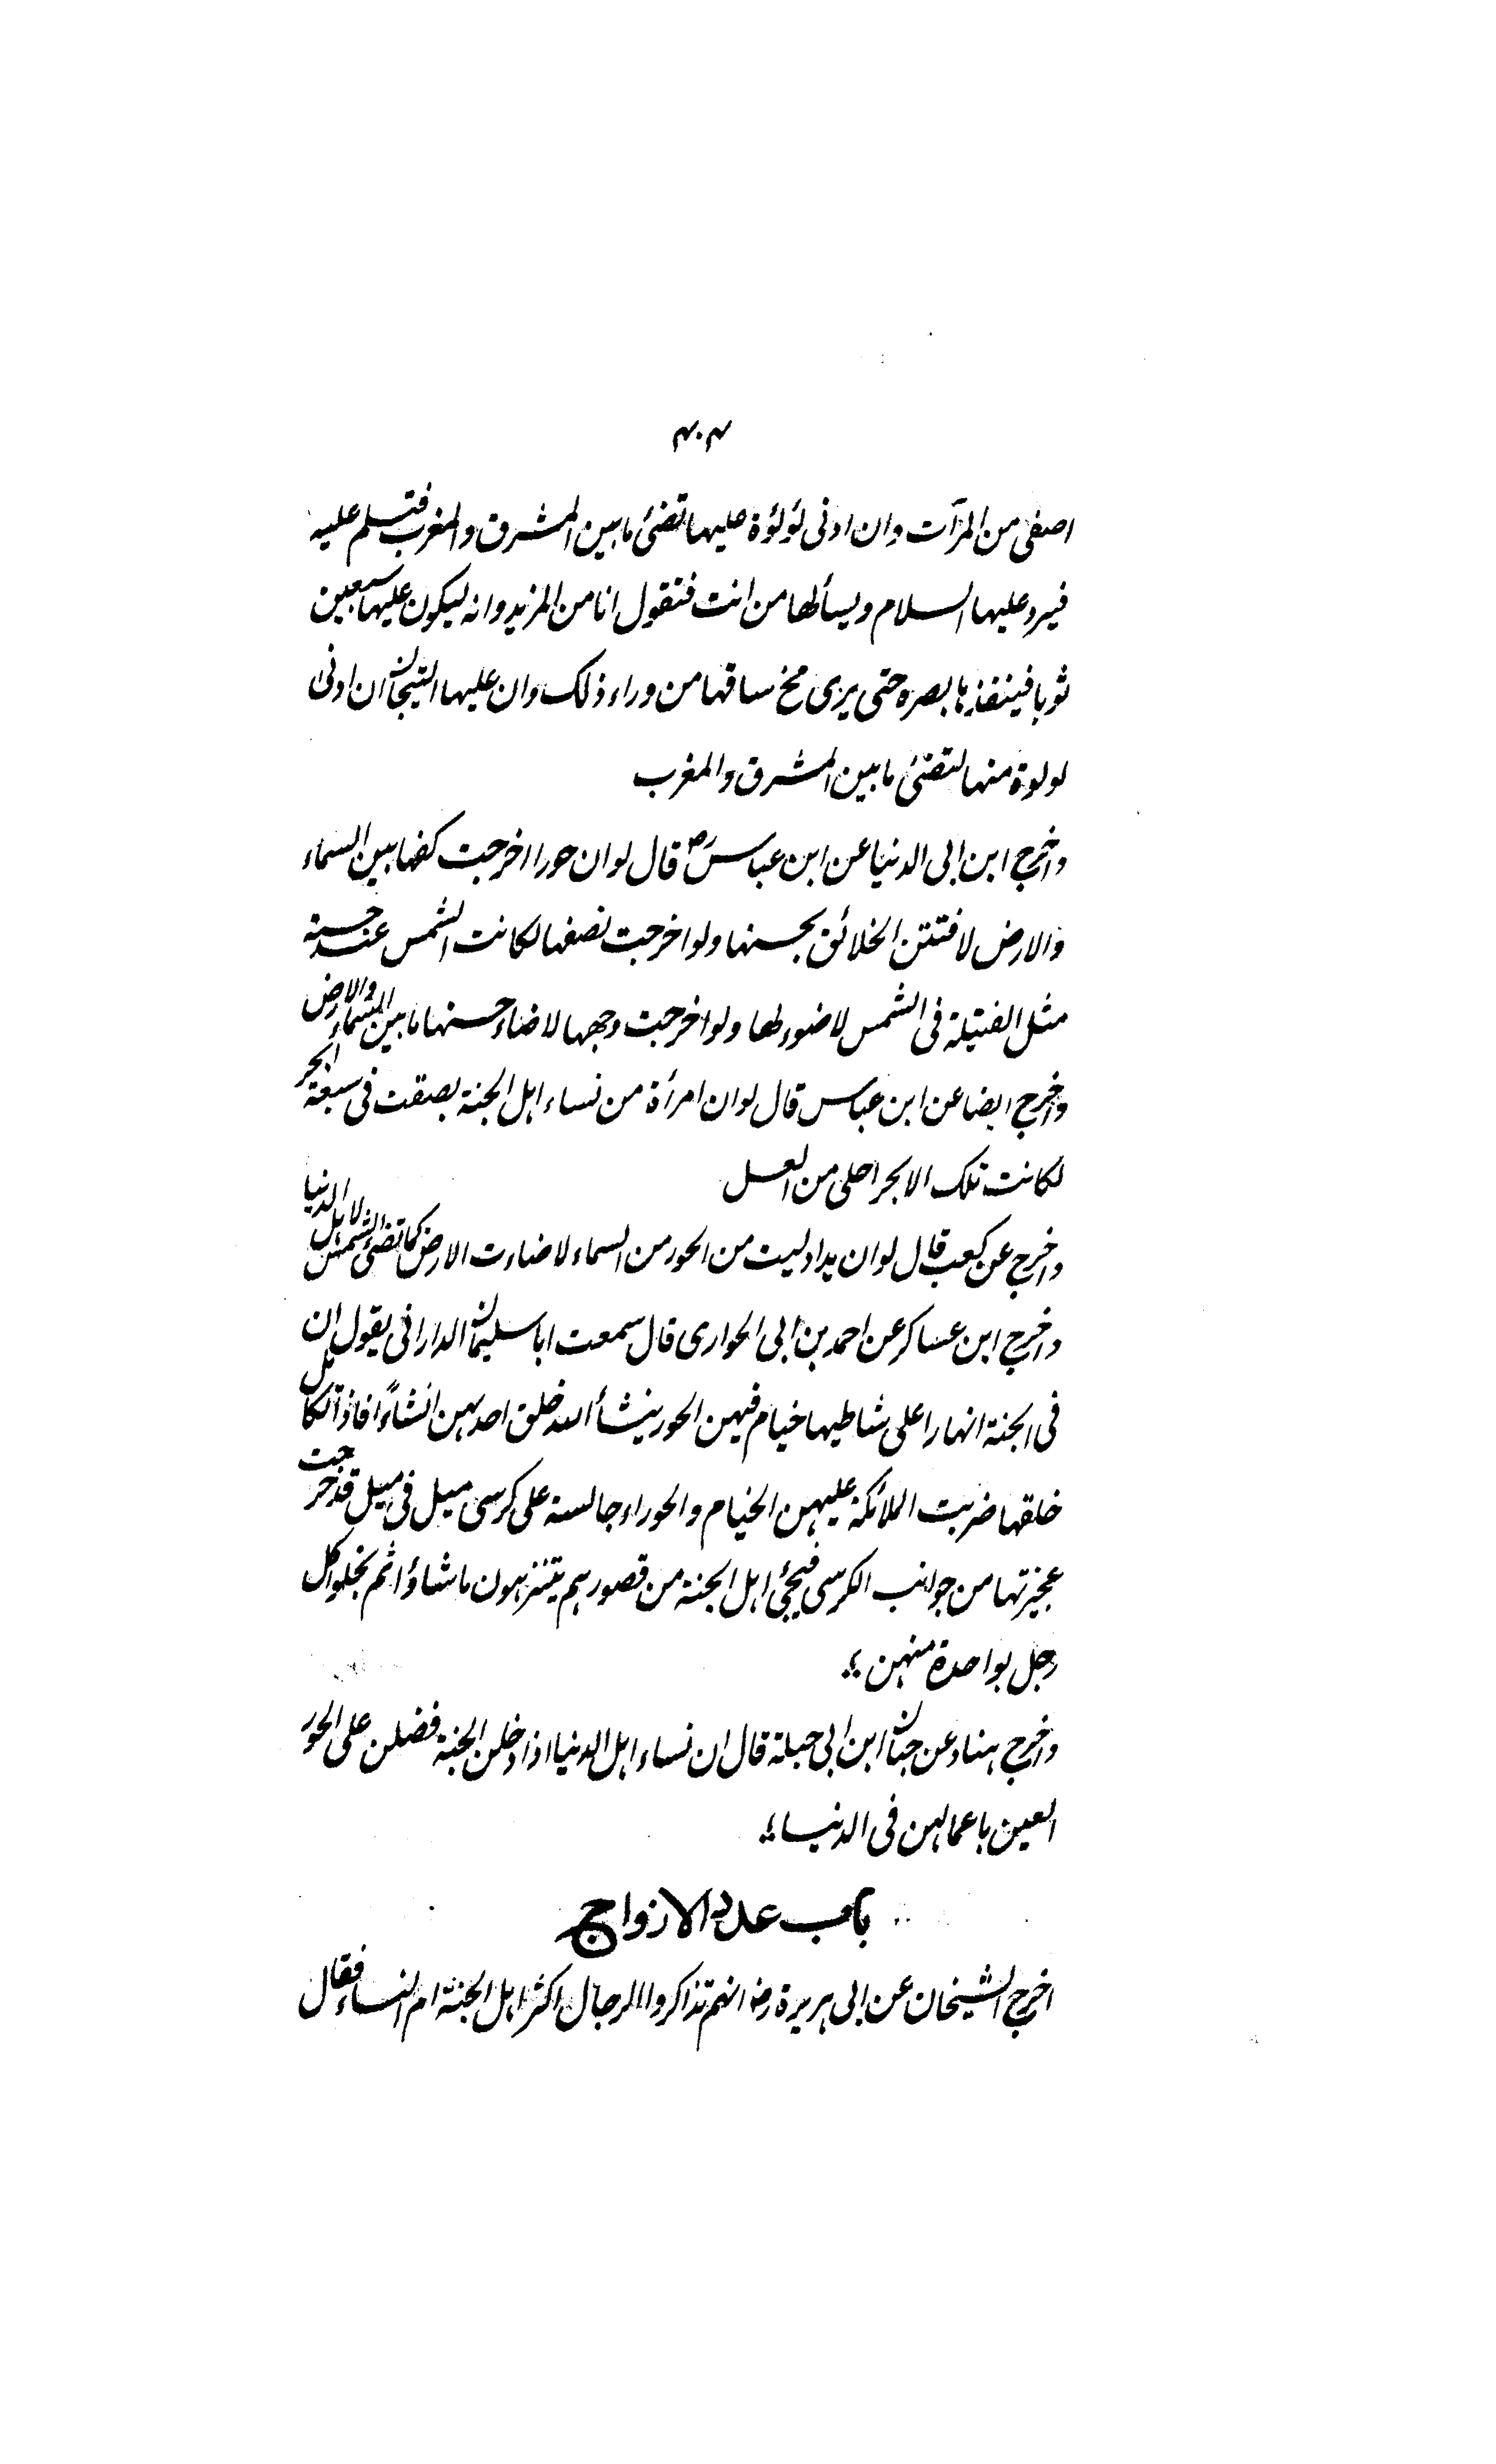 ۴۰۴
اصفى من المرآت وان ادنى لؤلؤة عليها تضئ ما بين المشرق والمغرب فتسلم عليه
فيرد عليها السلام ويسألها من انت فتقول انا من المزيد وانه ليكون عليها سبعين
ثوبا فينفذها بصره حتى يرى مخ ساقها من وراء ذلك وان عليها التيجان ان ادنى
لولوة منها لتضئ ما بين المشرق والمغرب
واخرج ابن ابى الدنيا عن ابن عباس رض قال لو ان حورا اخرجت كفها بين السماء
والارض لافتتن الخلائق بحسنها ولو اخرجت نصفها لكانت الشمس عند حسنه
مثل الفتيلة فى الشمس لا ضوء لها ولو اخرجت وجهها لاضاء حسنها ما بين السماء والارض
واخرج ايضا عن ابن عباس قال لو ان امرأة من نساء اهل الجنة بصقت فى سبعة ابحر
لكانت تلك الابحر احلى من العسل
واخرج عن كعب قال لو ان يدا دليت من الحور من السماء لاضاءت الارض كما تضئ الشمس لاهل الدنيا
واخرج ابن عساكر عن احمد بن ابى الحوارى قال سمعت ابا سليمان الدارانى يقول ان
فى الجنة انهارا على شاطيها خيام فيهن الحور ينشأ الله خلق احدهن انشاءً فاذا تكامل
خلقها ضربت الملائكة عليهن الخيام والحوراء جالسة على كرسى ميل فى ميل قد خرجت
عجيزتها من جوانب الكرسى فيجئ اهل الجنة من قصورهم يتنزهون ما شاؤا ثم يخلو كل
رجل بواحدة منهن ؛
واخرج هناد عن حبان ابن ابى جبلة قال ان نساء اهل الدنيا اذا دخلن الجنة فضلن على الحور
العين باعمالهن فى الدنيا ؛
باب عدد الازواج
اخرج الشيخان عن ابى هريرة رض انهم تذاكروا الرجال اكثر اهل الجنة ام النساء فقال